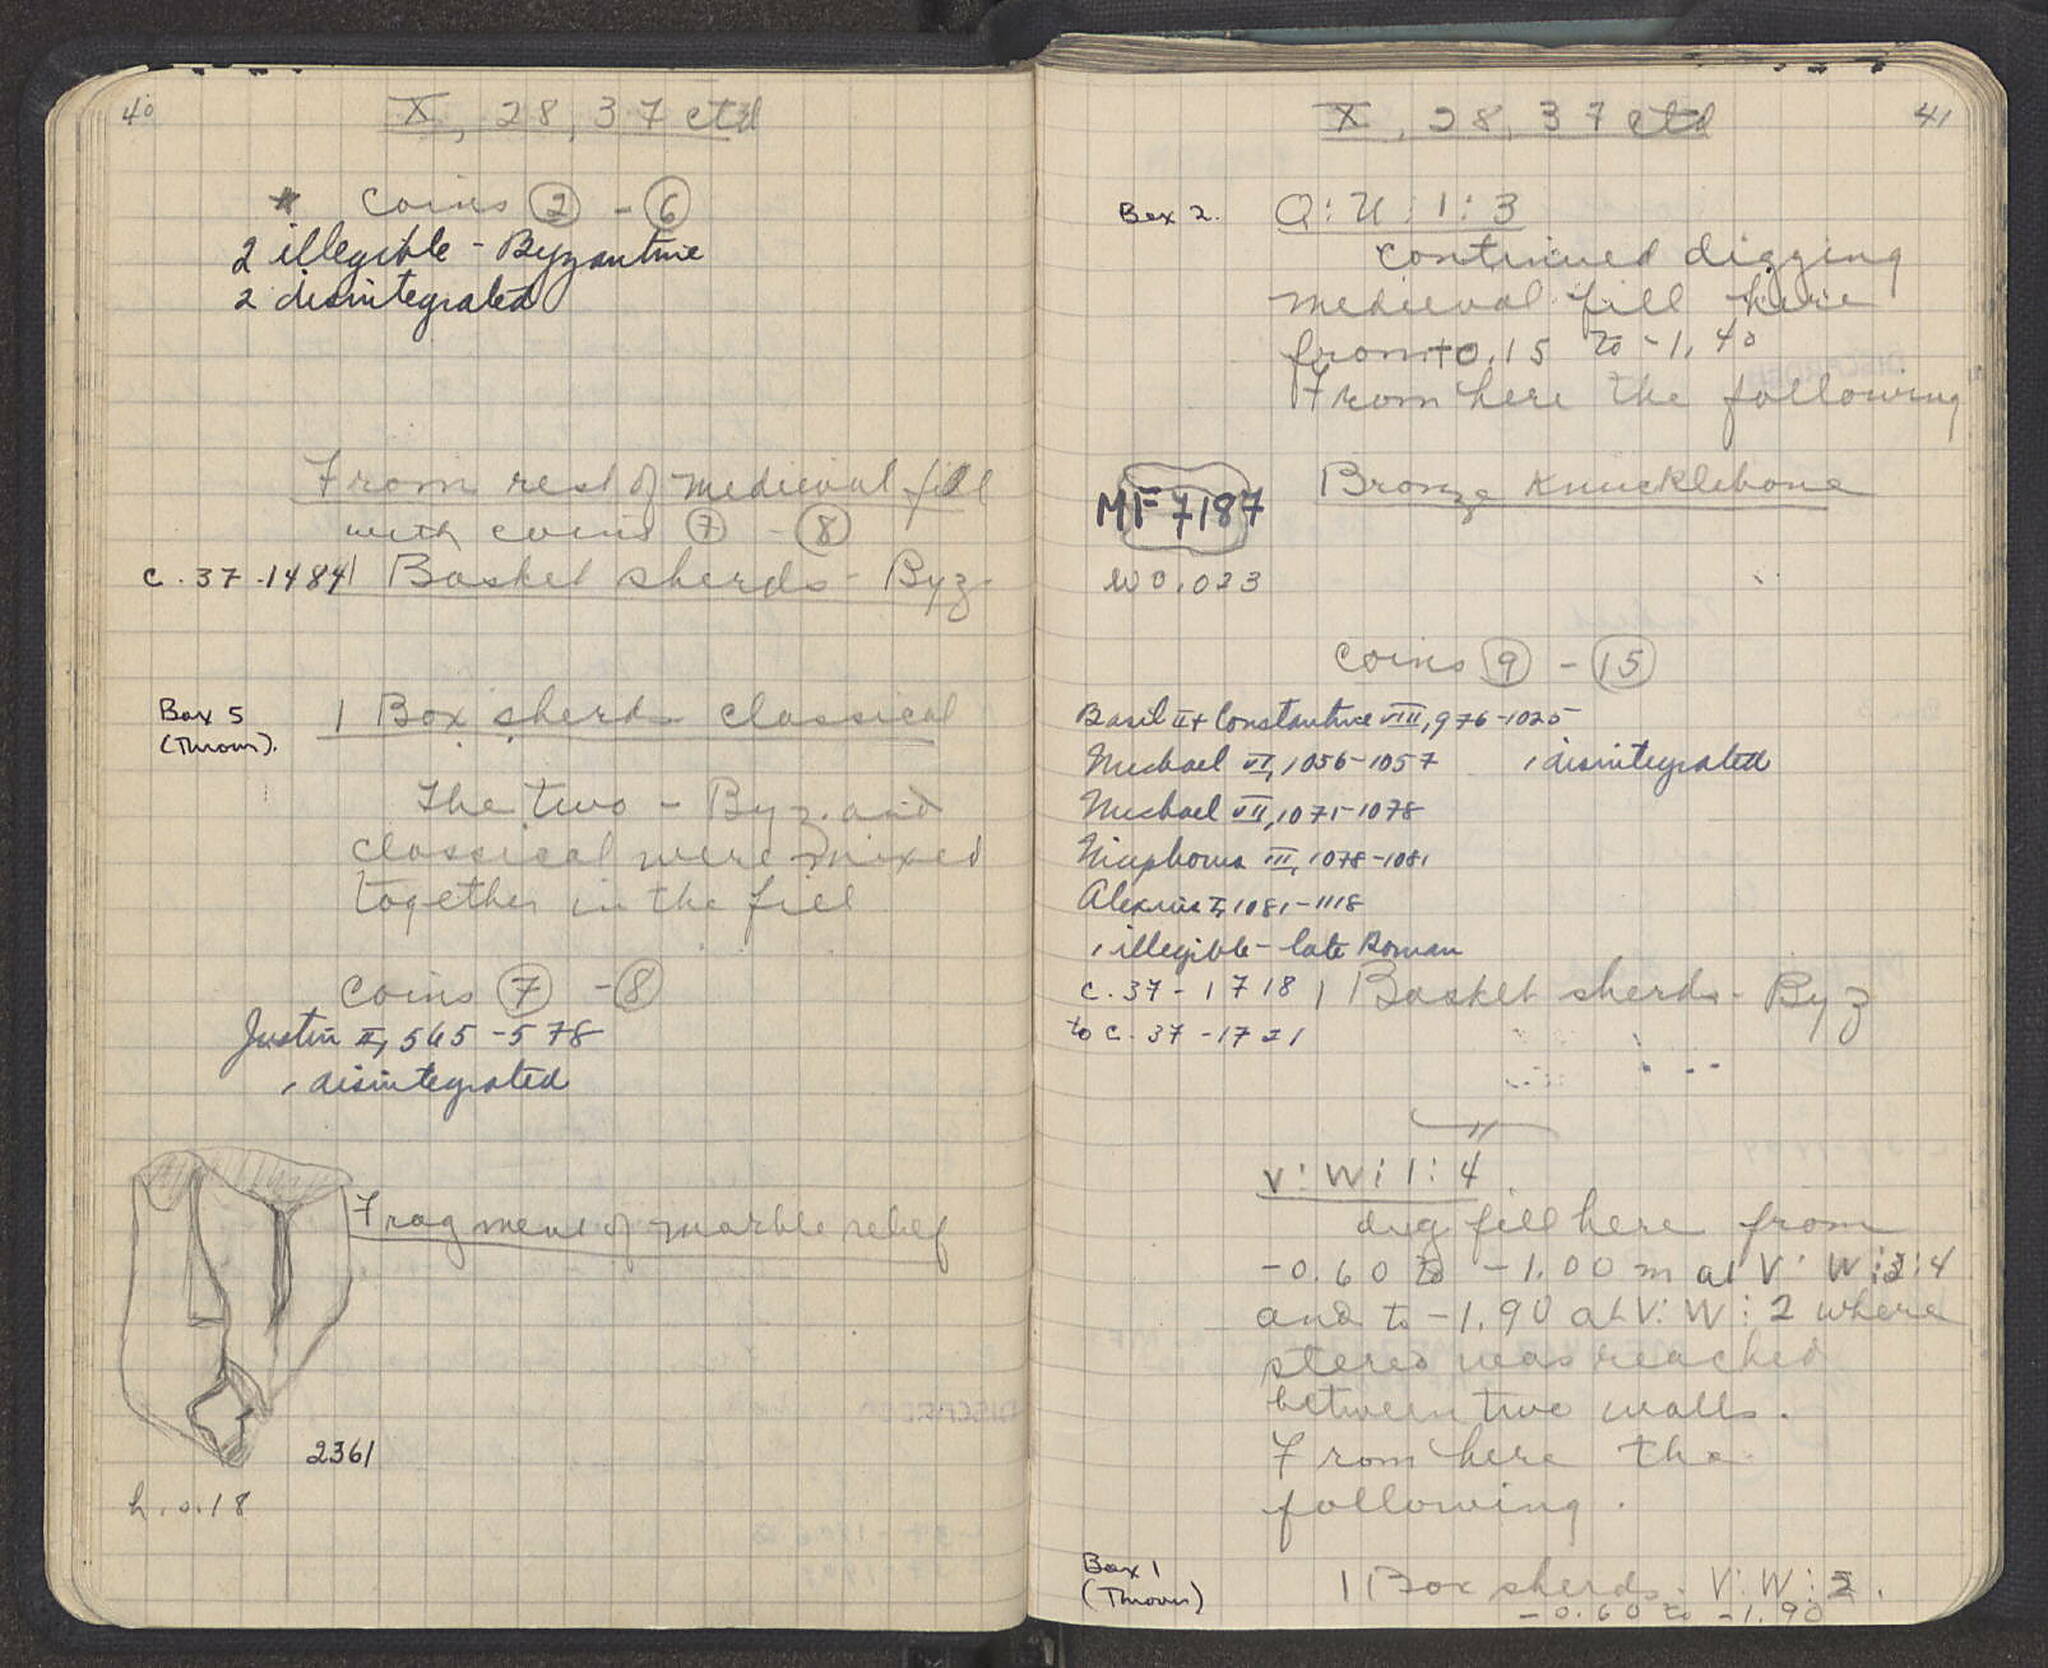 40
X, 28, 37 ctd
* coins 2 - 6
2 illegible - Byzantine
2 disintegrated
From rest of medieval fill
with coins 7 - 8
C.37-1484 1 Basket sherds - Byz
Box 5
(Thrown).
1 Box sherds classical
The two - Byz. and
classical were mixed
together in the fill
coins 7 - 8
Justin II, 565-578
1 disintegrated
Fragment of marble relief
2361
h. 0.18
X, 28, 37 ctd
41
Box 2.
Q:U:1:3
continued digging
medieval fill here
from +0.15 to -1.40
From here the following
MF 7187
Bronze Knucklebone
W 0.023
coins 9 - 15
Basil II + Constantine VIII, 976-1025
Michael VI, 1056-1057 1 disintegrated
Michael VII, 1071-1078
Nicephorus III, 1078-1081
Alexius I, 1081-1118
1 illegible - late Roman
C.37-1718 1 Basket sherds - Byz
to C.37-1721
V:W:1:4
dug fill here from
-0.60 to -1.00 m at V:W:3:4
and to -1.90 at V:W:2 where
stereo was reached
between two walls.
From here the
following.
Box 1
(Thrown)
1 Box sherds. V:W:2.
-0.60 to -1.90